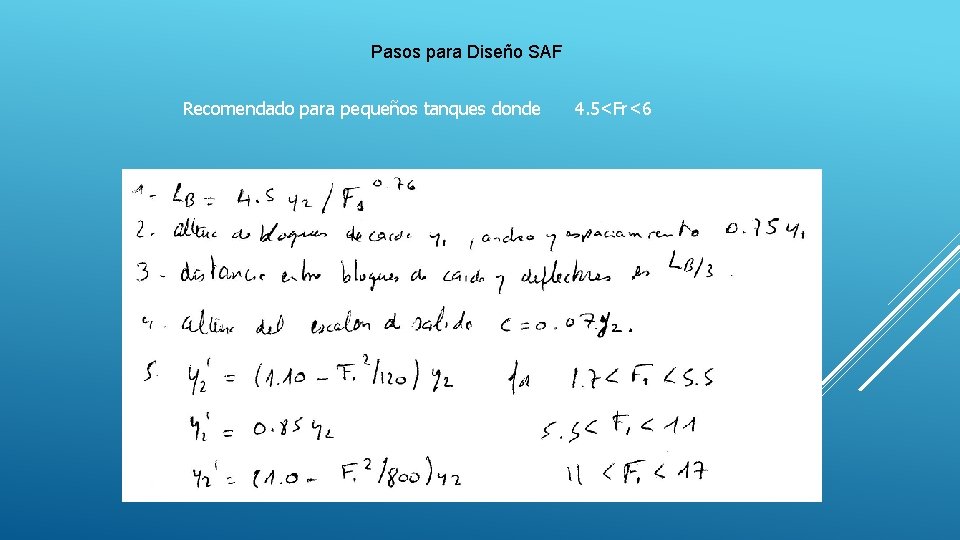 Pasos para Diseño SAF
Recomendado para pequeños tanques donde 4.5<Fr<6
1- LB = 4.5 y2 / F1^0.76
2. altura de bloques de caida y1, ancho y espaciamiento 0.75 y1
3- distancia entre bloques de caida y deflectores es LB/3.
4. altura del escalon de salida c=0.07y2.
5. y2' = (1.10 - F1²/120) y2 for 1.7< F1 <5.5
y2' = 0.85 y2 5.5< F1 < 11
y2' = (1.0 - F1²/800) y2 11 < F1 < 17